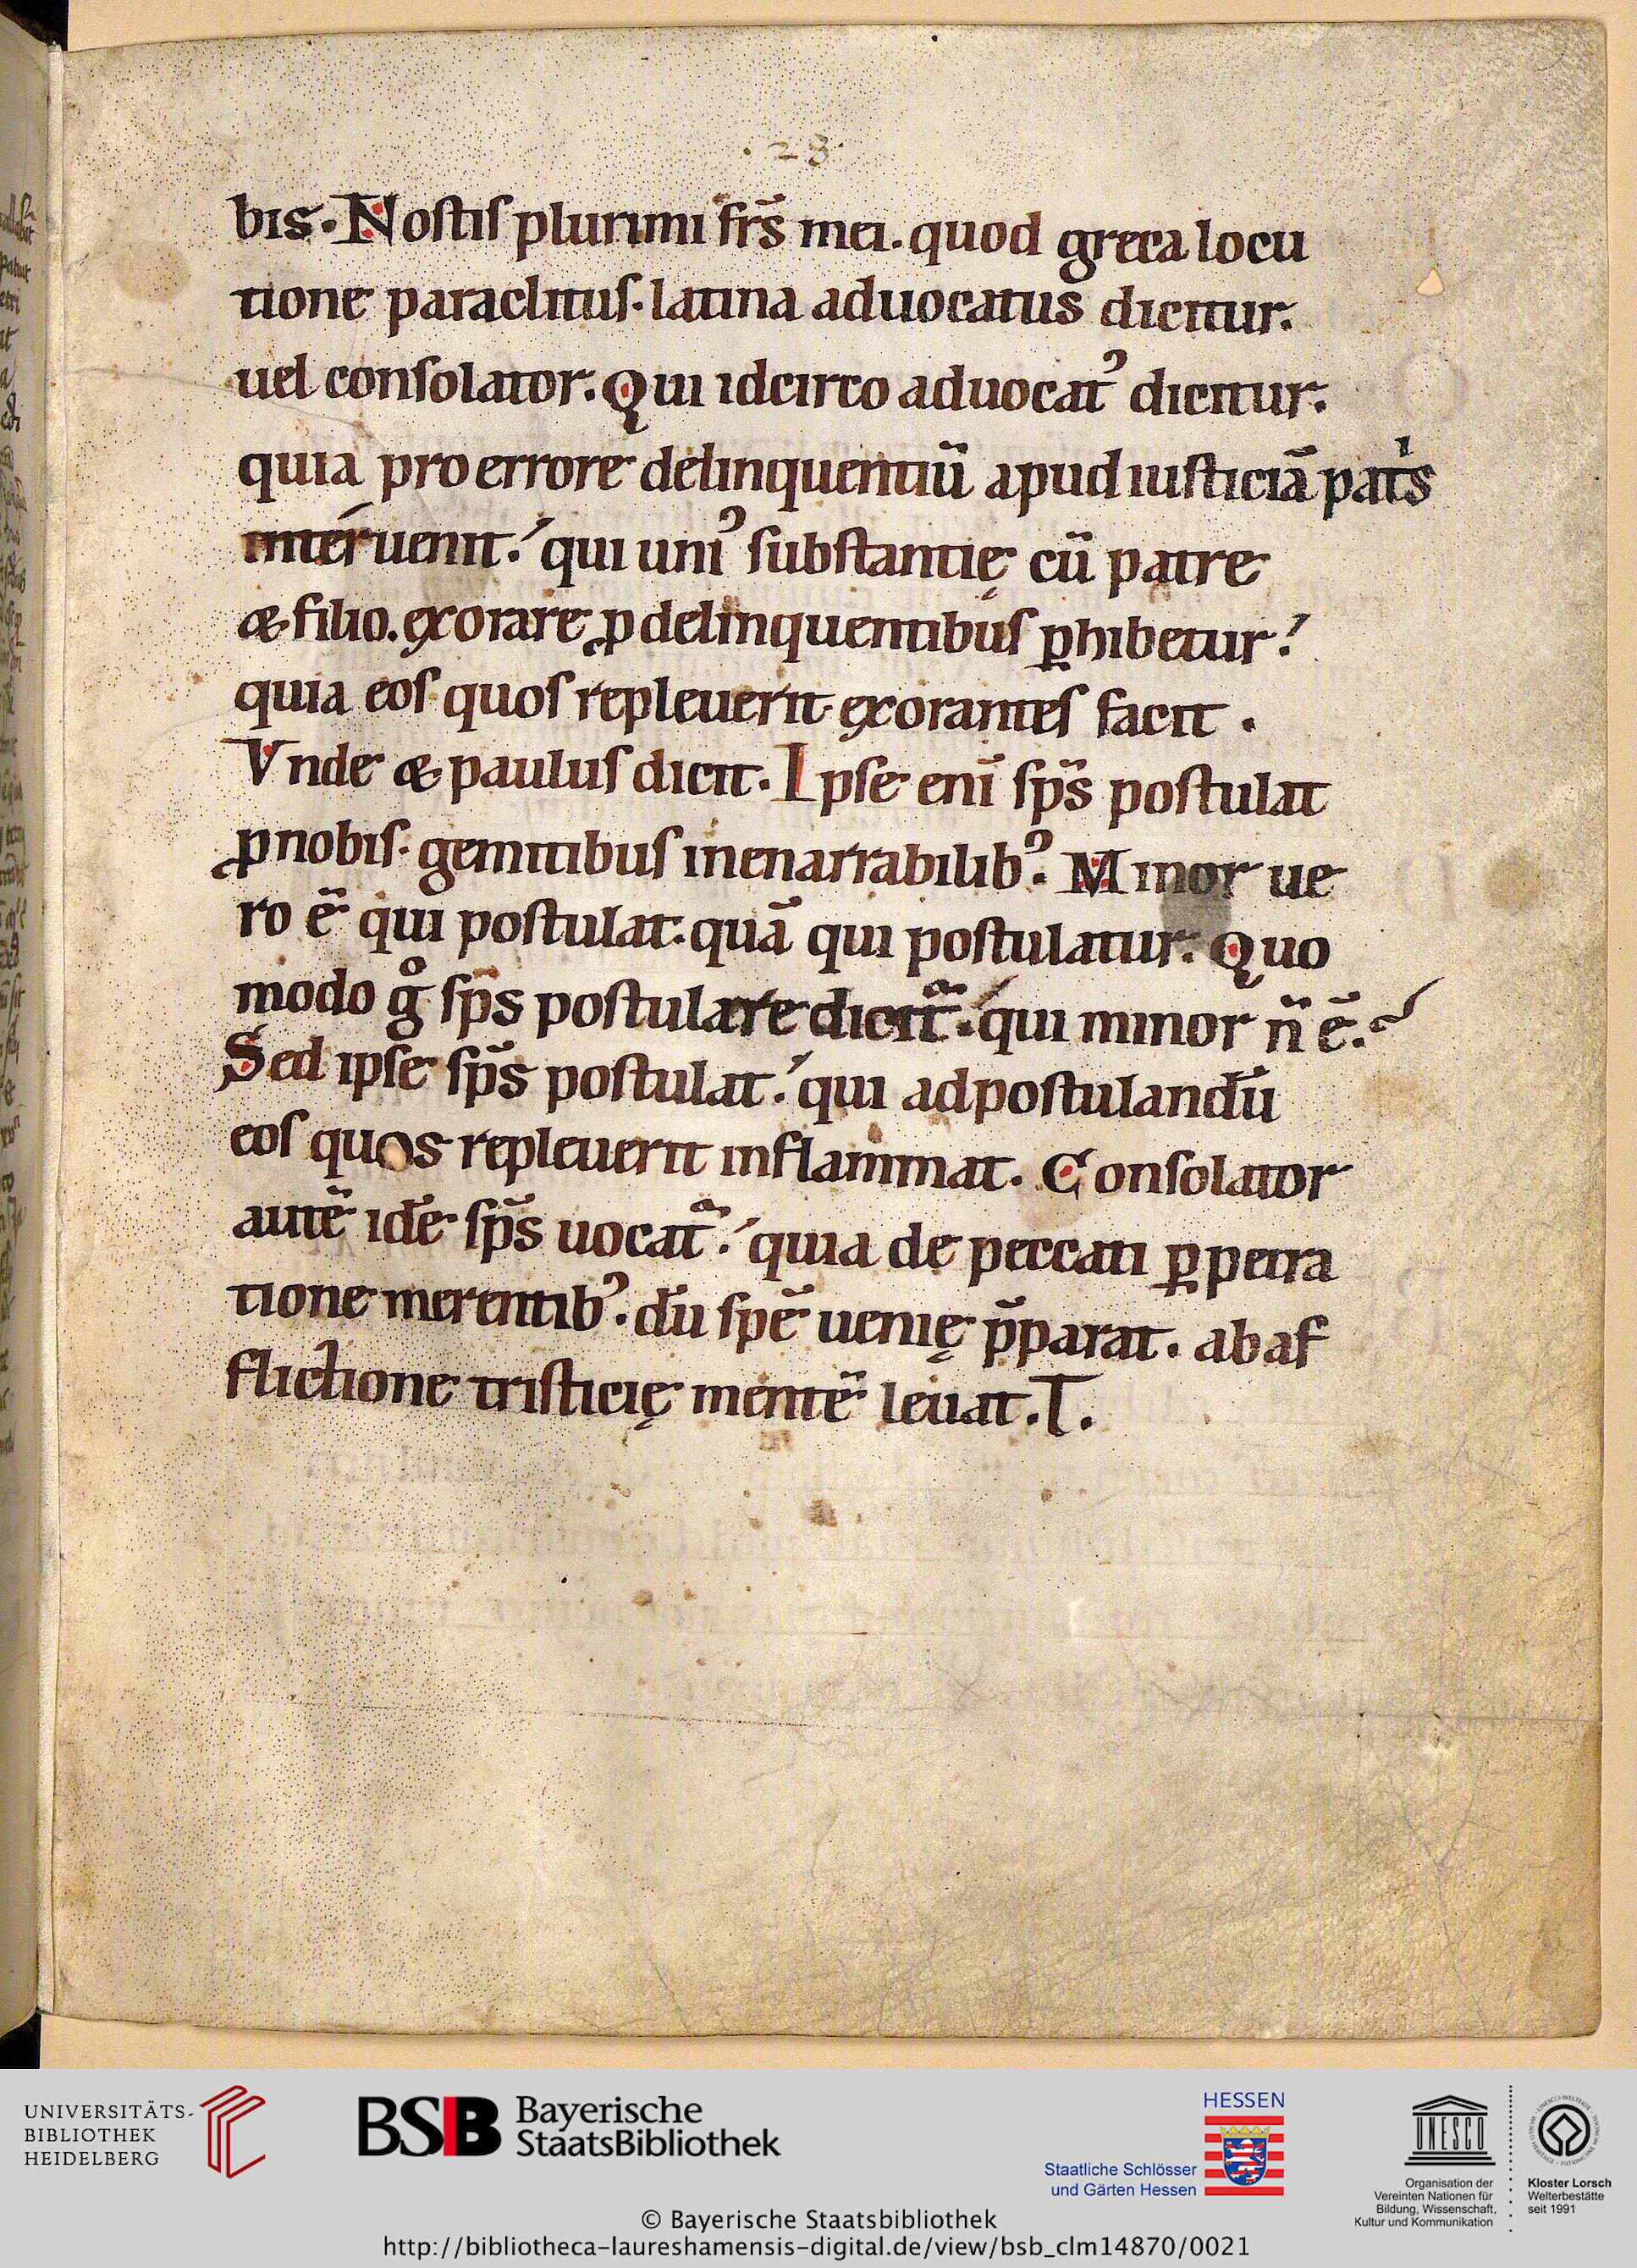 ·23·
bis. Nostis plurimi fr̄s mei. quod greca locu
tione paraclitus. latina aduocatus dicitur.
uel consolator. Qui idcirco aduocatꝰ dicitur.
quia pro errore delinquentiū apud iusticiā patͥs
interuenit. qui uniꝰ substantię cū patre
& filio. exorare ꝓ delinquentibus ꝑhibetur.
quia eos quos repleuerit exorantes facit.
Vnde & paulus dicit. Ipse eni̅ sp̄s postulat
ꝓ nobis. gemitibus inenarrabilibꝰ. Minor ue
ro ē qui postulat. quā qui postulatur. Quo
modo gͦ sp̄s postulare dicit̄. qui minor n̄ ē?
Sed ipse sp̄s postulat. qui ad postulandū
eos quos repleuerit inflammat. Consolator
autē idē sp̄s uocat̄. quia de peccati ꝑpetra
tione merentibꝰ. dū spē uenię p̄parat. ab af
flictione tristicię mentē leuat. T.
UNIVERSITÄTS-
BIBLIOTHEK
HEIDELBERG
BSB Bayerische
StaatsBibliothek
HESSEN
Staatliche Schlösser
und Gärten Hessen
UNESCO
Organisation der
Vereinten Nationen für
Bildung, Wissenschaft,
Kultur und Kommunikation
Kloster Lorsch
Welterbestätte
seit 1991
© Bayerische Staatsbibliothek
http://bibliotheca-laureshamensis-digital.de/view/bsb_clm14870/0021